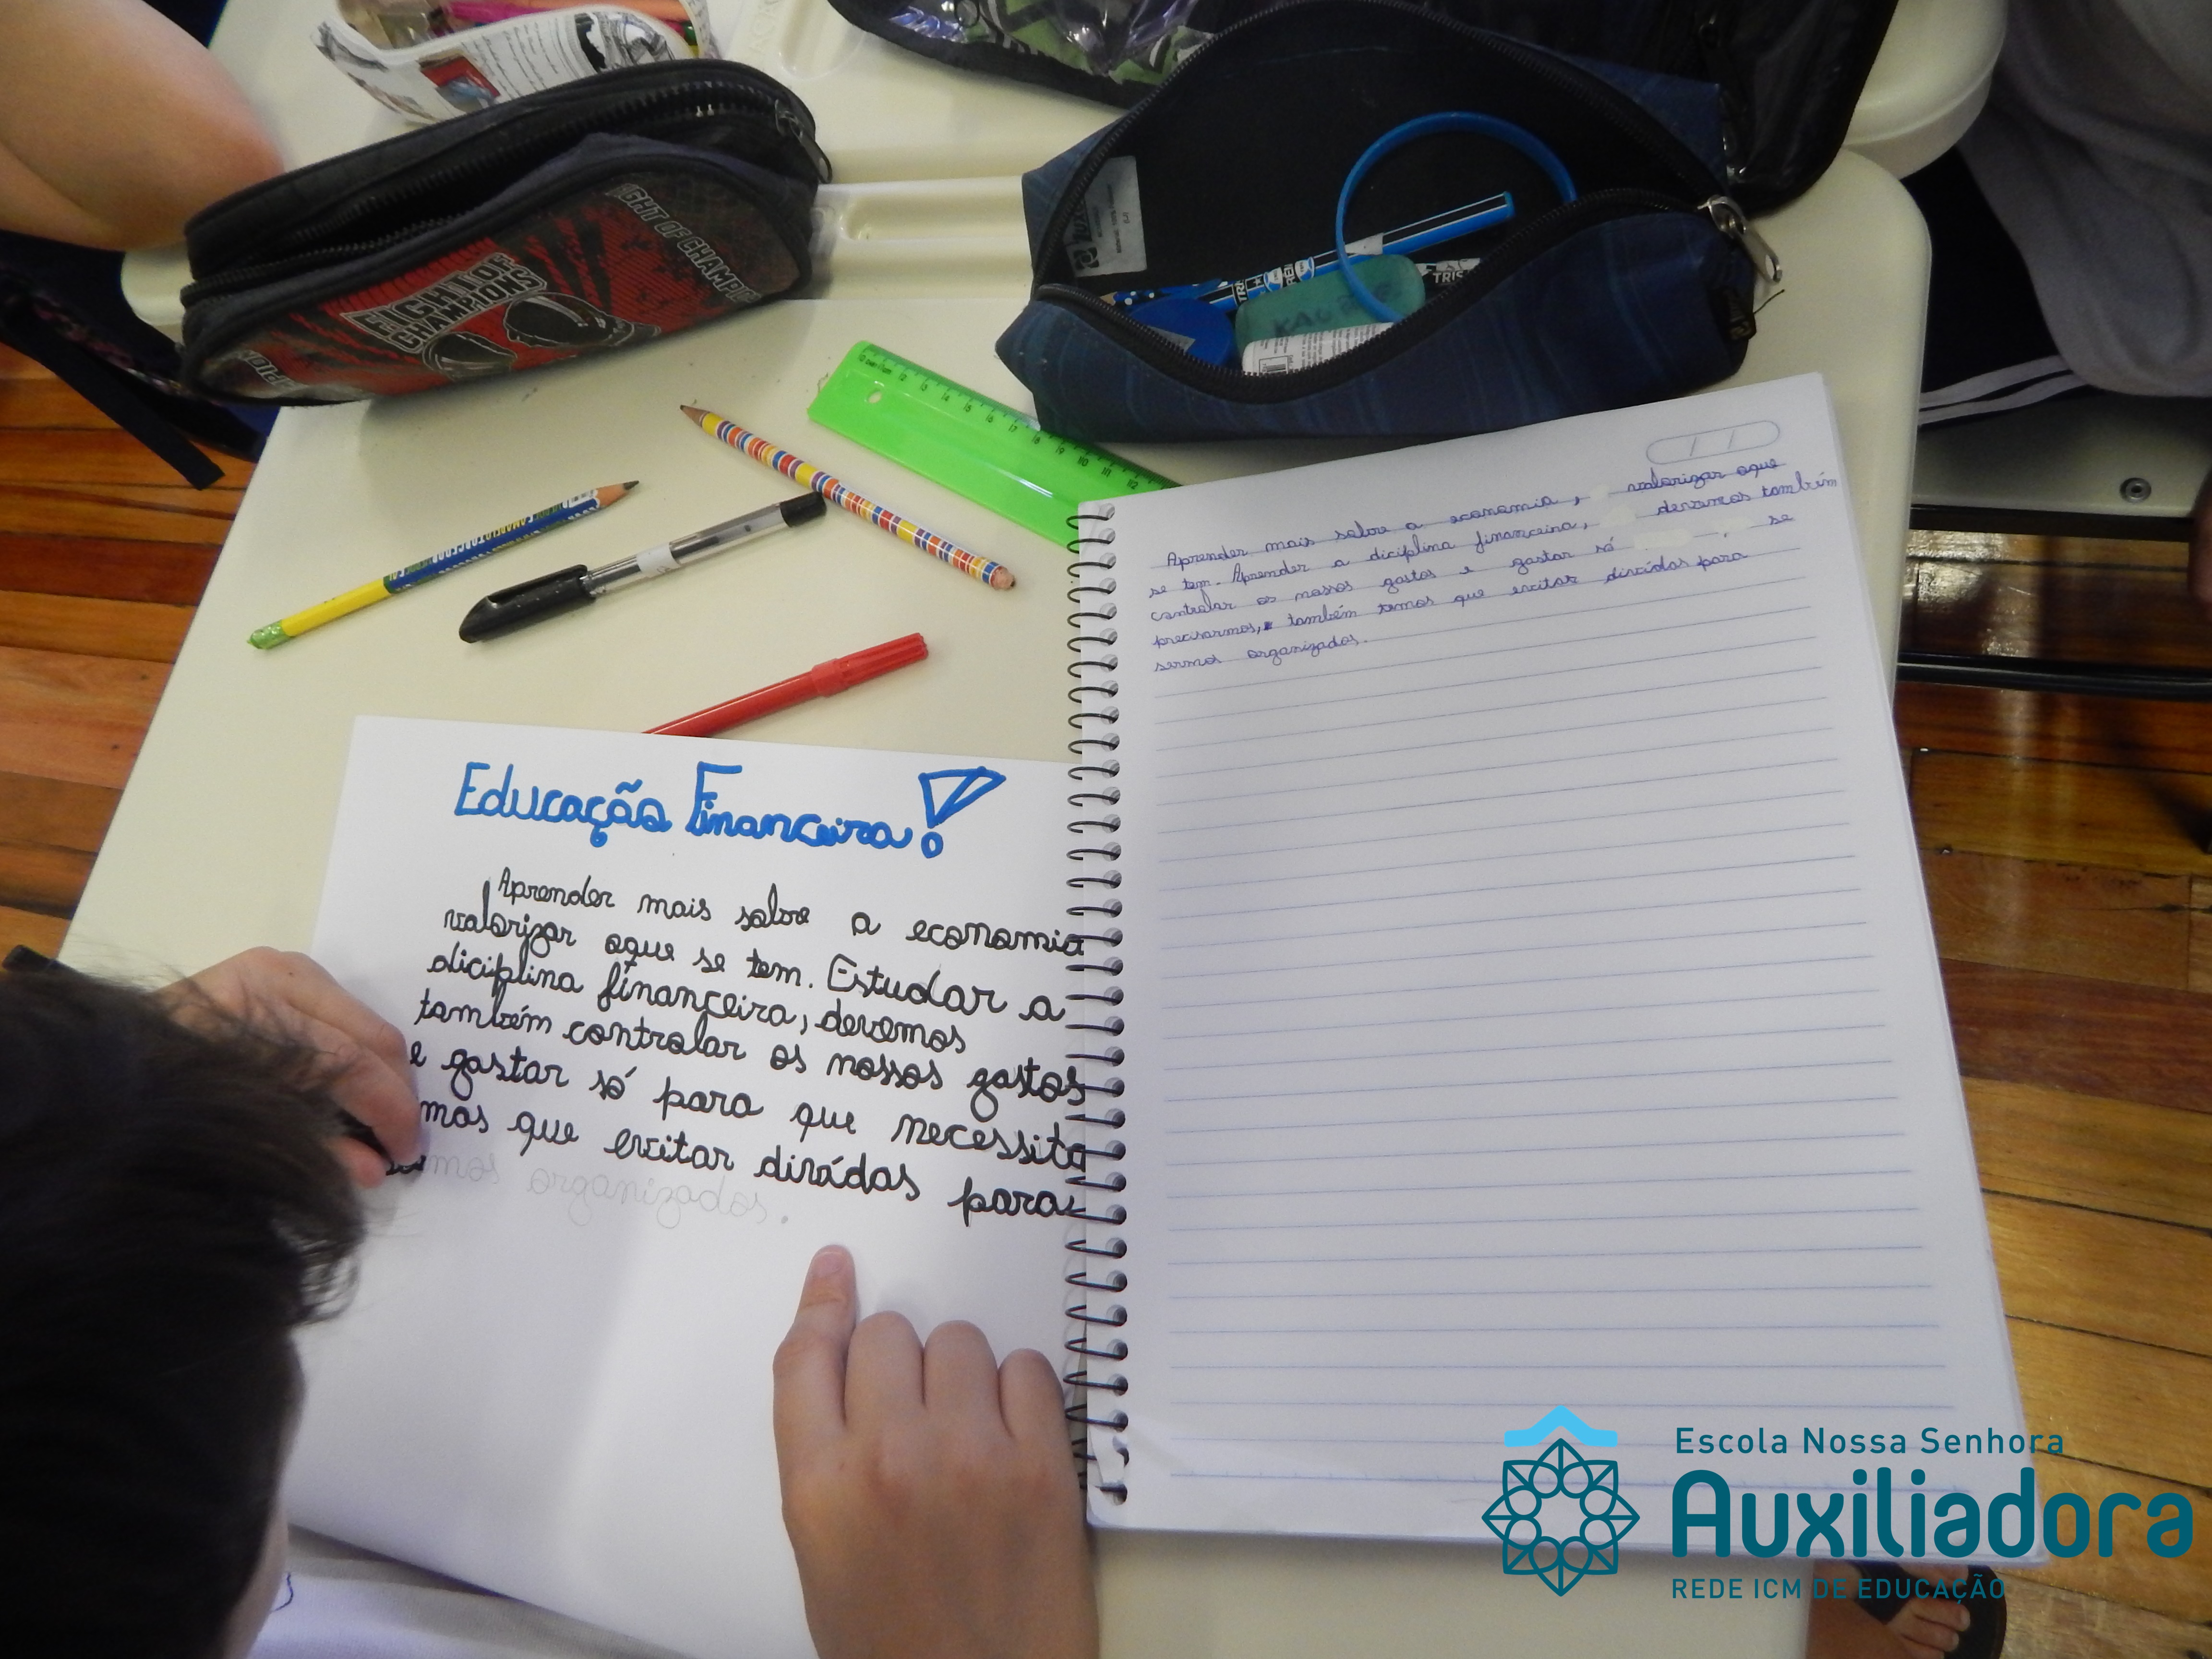 FIGHT OF CHAMPIONS
IGHT OF CHAMPIO
PION
Aprender mais sobre a economia, valorizar oque
se tem. Aprender a diciplina financeira, devemos também
controlar os nossos gastos e gastar só se
precisarmos, também temos que evitar dívidas para
sermos organizados.
Educação Financeira!
Aprender mais sobre a economia
valorizar oque se tem. Estudar a
diciplina financeira, devemos
também controlar os nossos gastos
e gastar só para que necessita
mos que evitar dívidas para
mos organizados.
Escola Nossa Senhora
Auxiliadora
REDE ICM DE EDUCAÇÃO